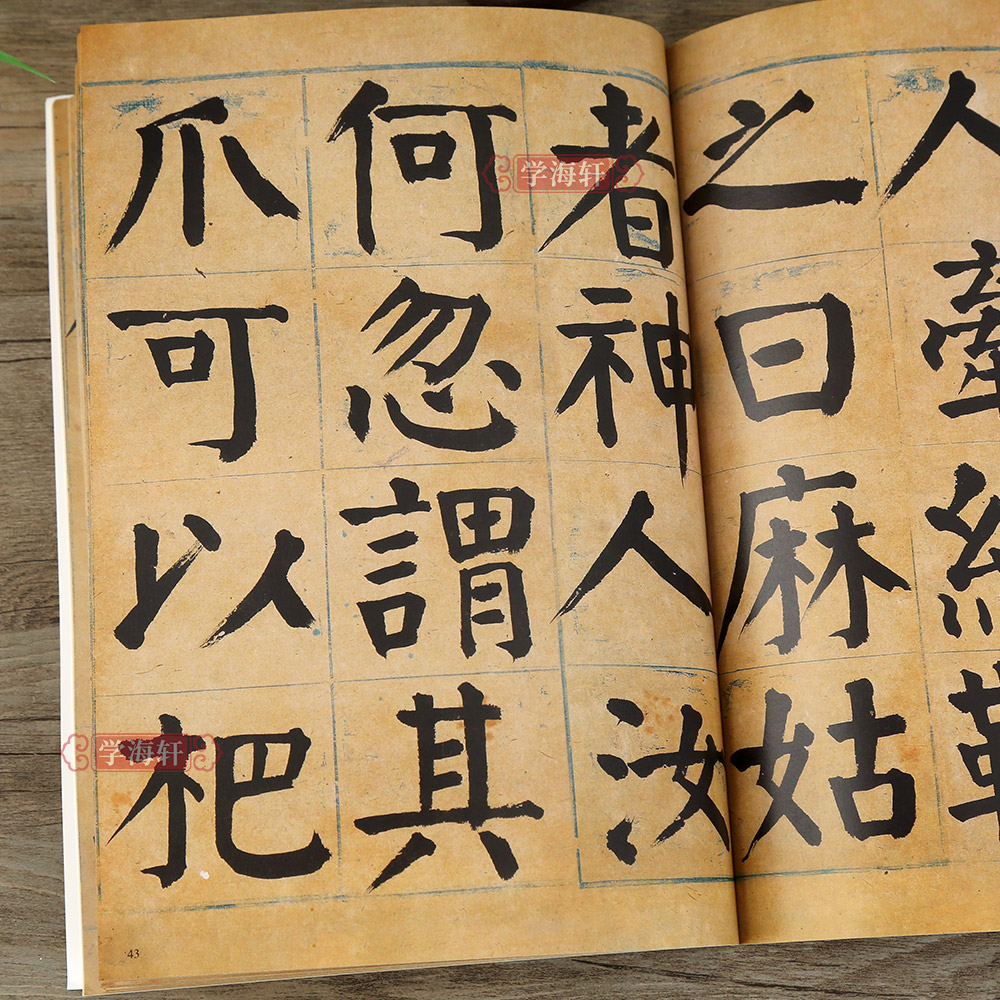 人牽
之曰麻姑
者神人汝
何忽謂其
爪可以杷
学海轩
学海轩
43